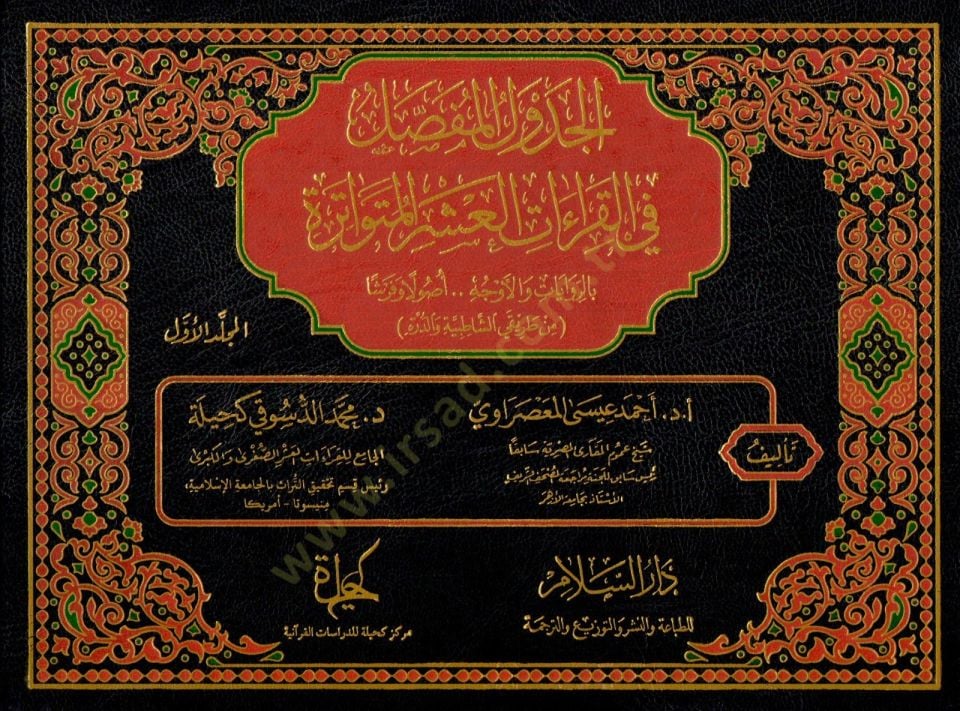 الجَدْوَلُ المُفَصَّلُ
في القِرَاءَاتِ العَشْرِ المُتَوَاتِرَة
بالروايات والأوجه .. أصولًا وفرشًا
(من طريقي الشاطبية والدرة)
المجلّد الأوّل
تأليف
أ.د. أحمد عيسى المعصراوي
شيخ عموم المقارئ المصرية سابقًا
رئيس سابق للجنة مراجعة المصحف الشريف
الأستاذ بجامعة الأزهر
د. محمد الدسوقي كحيلة
الجامع للقراءات العشر الصغرى والكبرى
ورئيس قسم تحقيق التراث بالجامعة الإسلامية،
بمنيسوتا - أمريكا
دار السلام
للطباعة والنشر والتوزيع والترجمة
كحيلة
مركز كحيلة للدراسات القرآنية